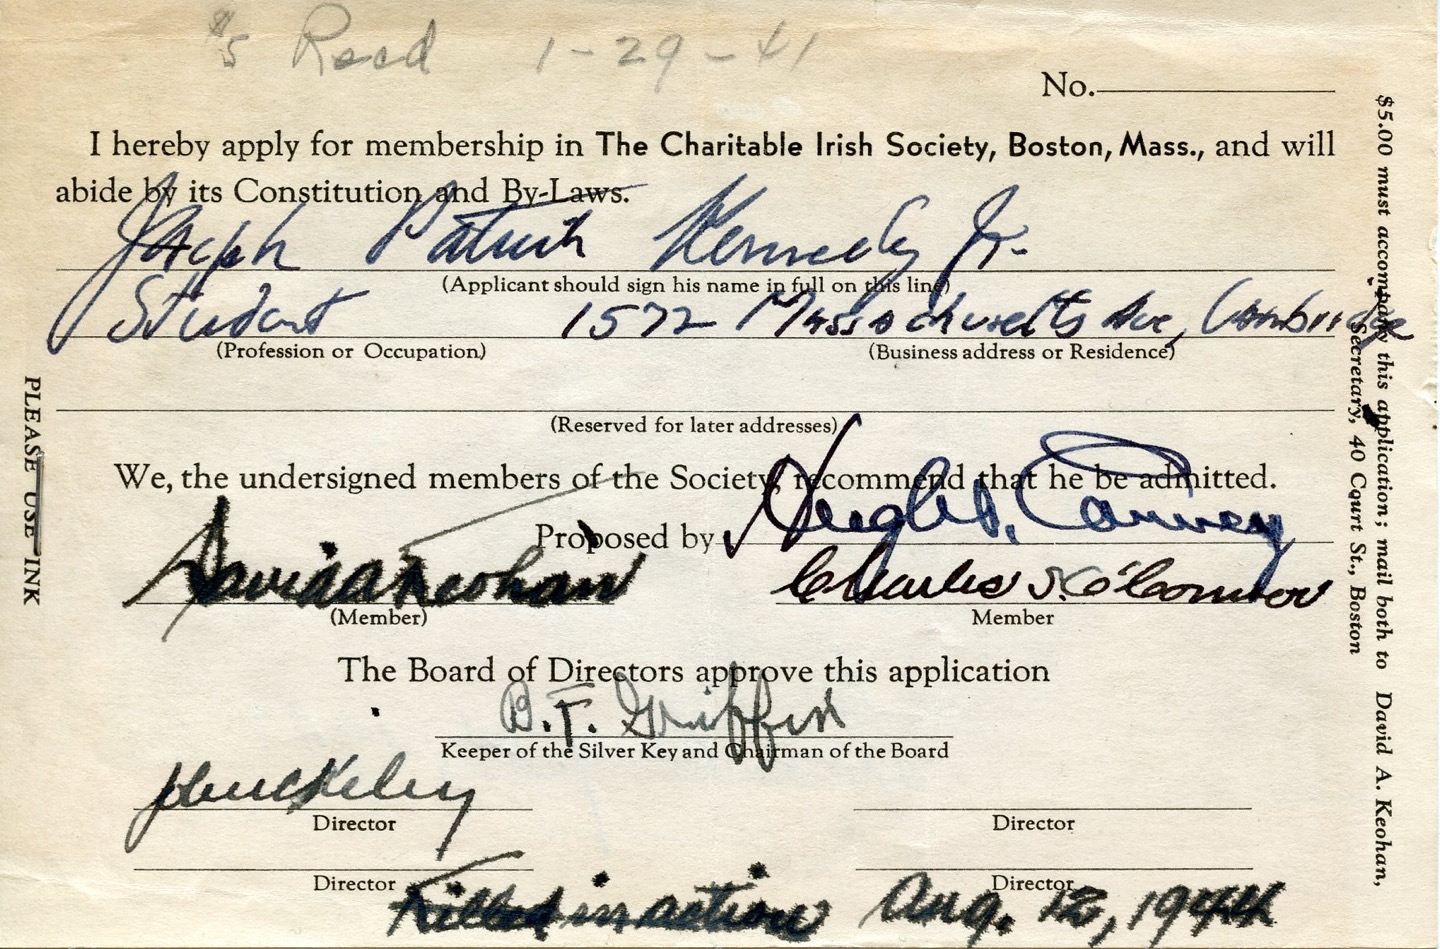 $5 Recd 1-29-41
No.
I hereby apply for membership in The Charitable Irish Society, Boston, Mass., and will
abide by its Constitution and By-Laws.
Joseph Patrick Kennedy Jr.
(Applicant should sign his name in full on this line)
Student 1572 Massachusetts Ave, Cambridge
(Profession or Occupation) (Business address or Residence)
(Reserved for later addresses)
We, the undersigned members of the Society, recommend that he be admitted.
Proposed by Hugh J. Carney
David A Keohan Charles J. O'Connor
(Member) Member
The Board of Directors approve this application
B. F. Griffin
Keeper of the Silver Key and Chairman of the Board
Director Director
Director Director
Killed in action Aug. 12, 1944
PLEASE USE INK
$5.00 must accompany this application; mail both to David A. Keohan,
Secretary, 40 Court St., Boston